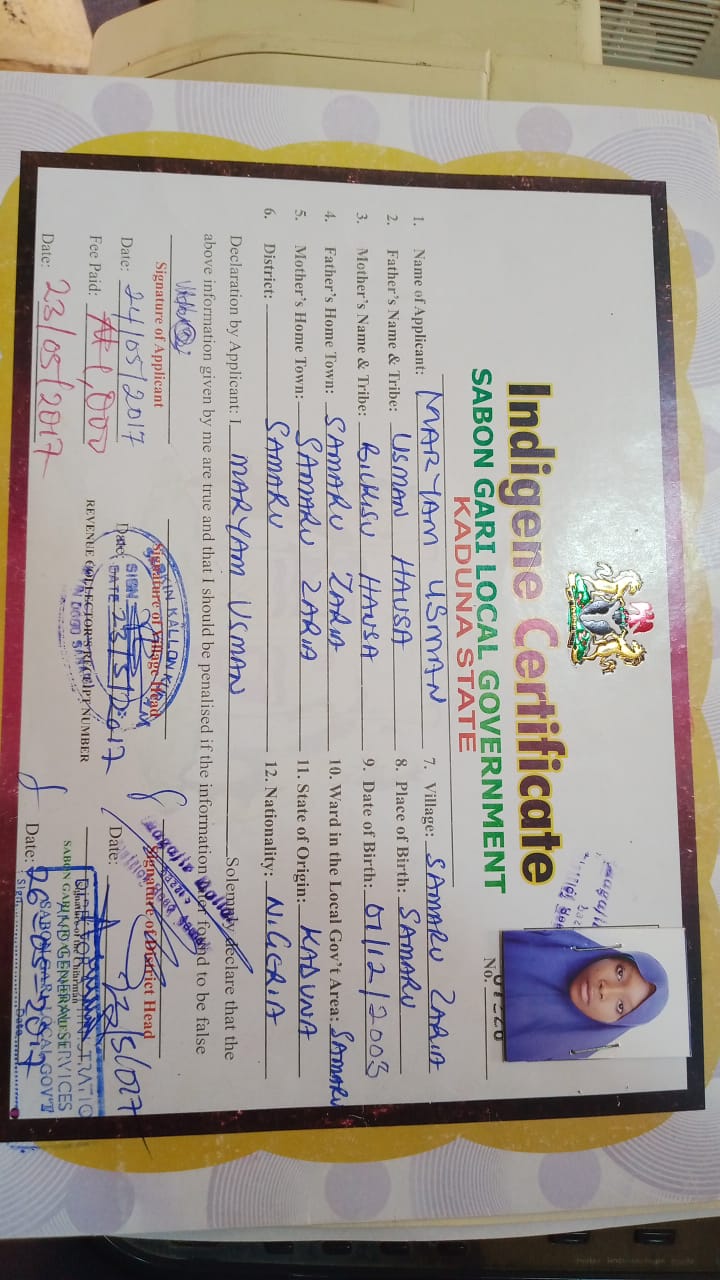 Indigene Certificate
SABON GARI LOCAL GOVERNMENT
KADUNA STATE
No.
1. Name of Applicant: MARYAM USMAN
2. Father's Name & Tribe: USMAN HAUSA
3. Mother's Name & Tribe: BILKISU HAUSA
4. Father's Home Town: SAMARU ZARIA
5. Mother's Home Town: SAMARU ZARIA
6. District: SAMARU
7. Village: SAMARU ZARIA
8. Place of Birth: SAMARU
9. Date of Birth: 01/12/2003
10. Ward in the Local Gov't Area: SAMARU
11. State of Origin: KADUNA
12. Nationality: NIGERIA
Declaration by Applicant: I MARYAM USMAN Solemnly declare that the
above information given by me are true and that I should be penalised if the information found to be false
Signature of Applicant
Date: 24/05/2017
Fee Paid: ₦1,000
Date: 23/05/2017
Signature of Village Head
SIGN
Date: DATE 23/5/2017
REVENUE COLLECTOR'S RECEIPT NUMBER
Signature of District Head
Date:
Signature of the Chairman
AND GENERAL SERVICES
SABON GARI LOCAL GOVT
Date: 26-05-2017
Sign Date